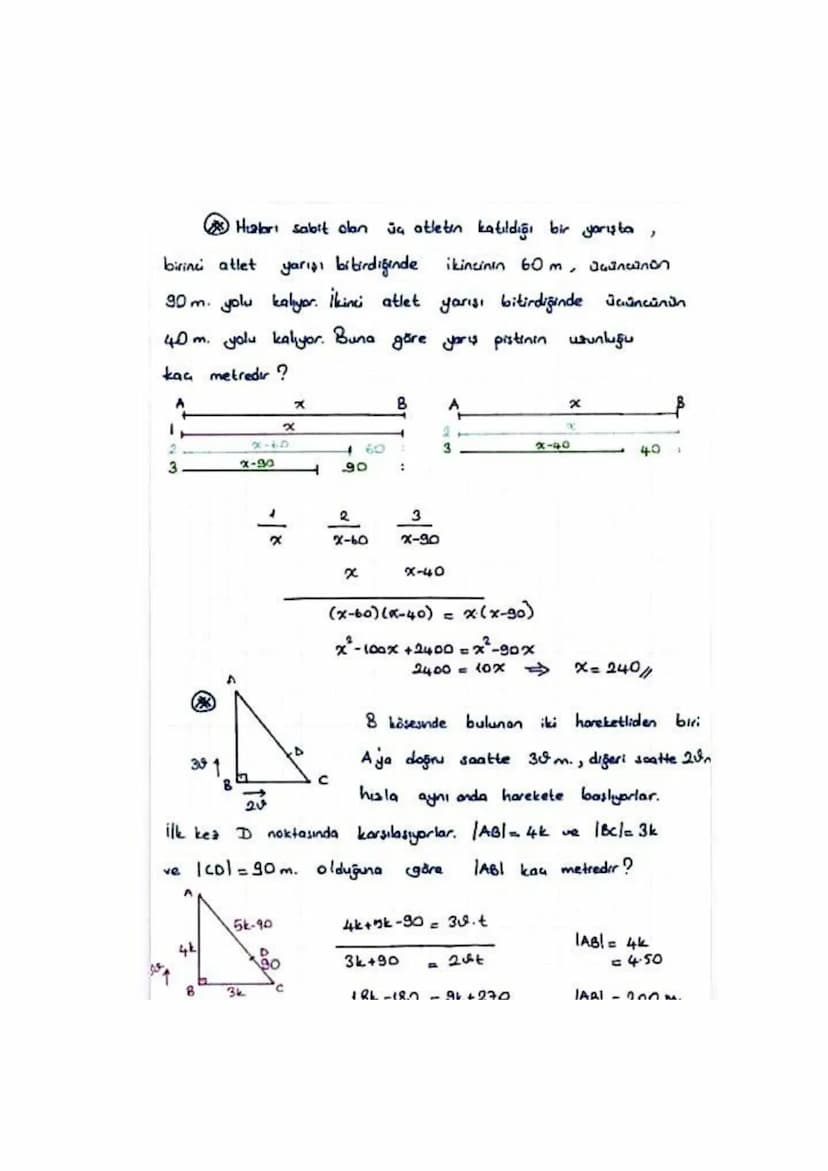 Hızları sabit olan üç atletin katıldığı bir yarışta ,
birinci atlet yarışı bitirdiğinde ikincinin 60 m , üçüncünün
90 m. yolu kalıyor. İkinci atlet yarışı bitirdiğinde üçüncünün
40 m. yolu kalıyor. Buna göre yarış pistinin uzunluğu
kaç metredir ?
A x B A x B
1 x 2 x
2 x-60 60 3 x-40 40
3 x-90 90
1 2 3
x x-60 x-90
x x-40
(x-60)(x-40) = x.(x-90)
x²-100x+2400 = x²-90x
2400 = 10x ⇒ x = 240 //
A
B köşesinde bulunan iki hareketliden biri
D
3ϑ ↑ A'ya doğru saatte 3ϑ m. , diğeri saatte 2ϑ
B C
2ϑ hızla aynı anda harekete başlıyorlar.
İlk kez D noktasında karşılaşıyorlar. |AB| = 4k ve |BC| = 3k
ve |CD| = 90 m. olduğuna göre |AB| kaç metredir ?
A
5k-90 4k+5k-90 = 3ϑ.t
4k D |AB| = 4k
90 3k+90 = 2ϑt = 4.50
B 3k C
18k-180 = 9k+270 |AB| = 200 m.